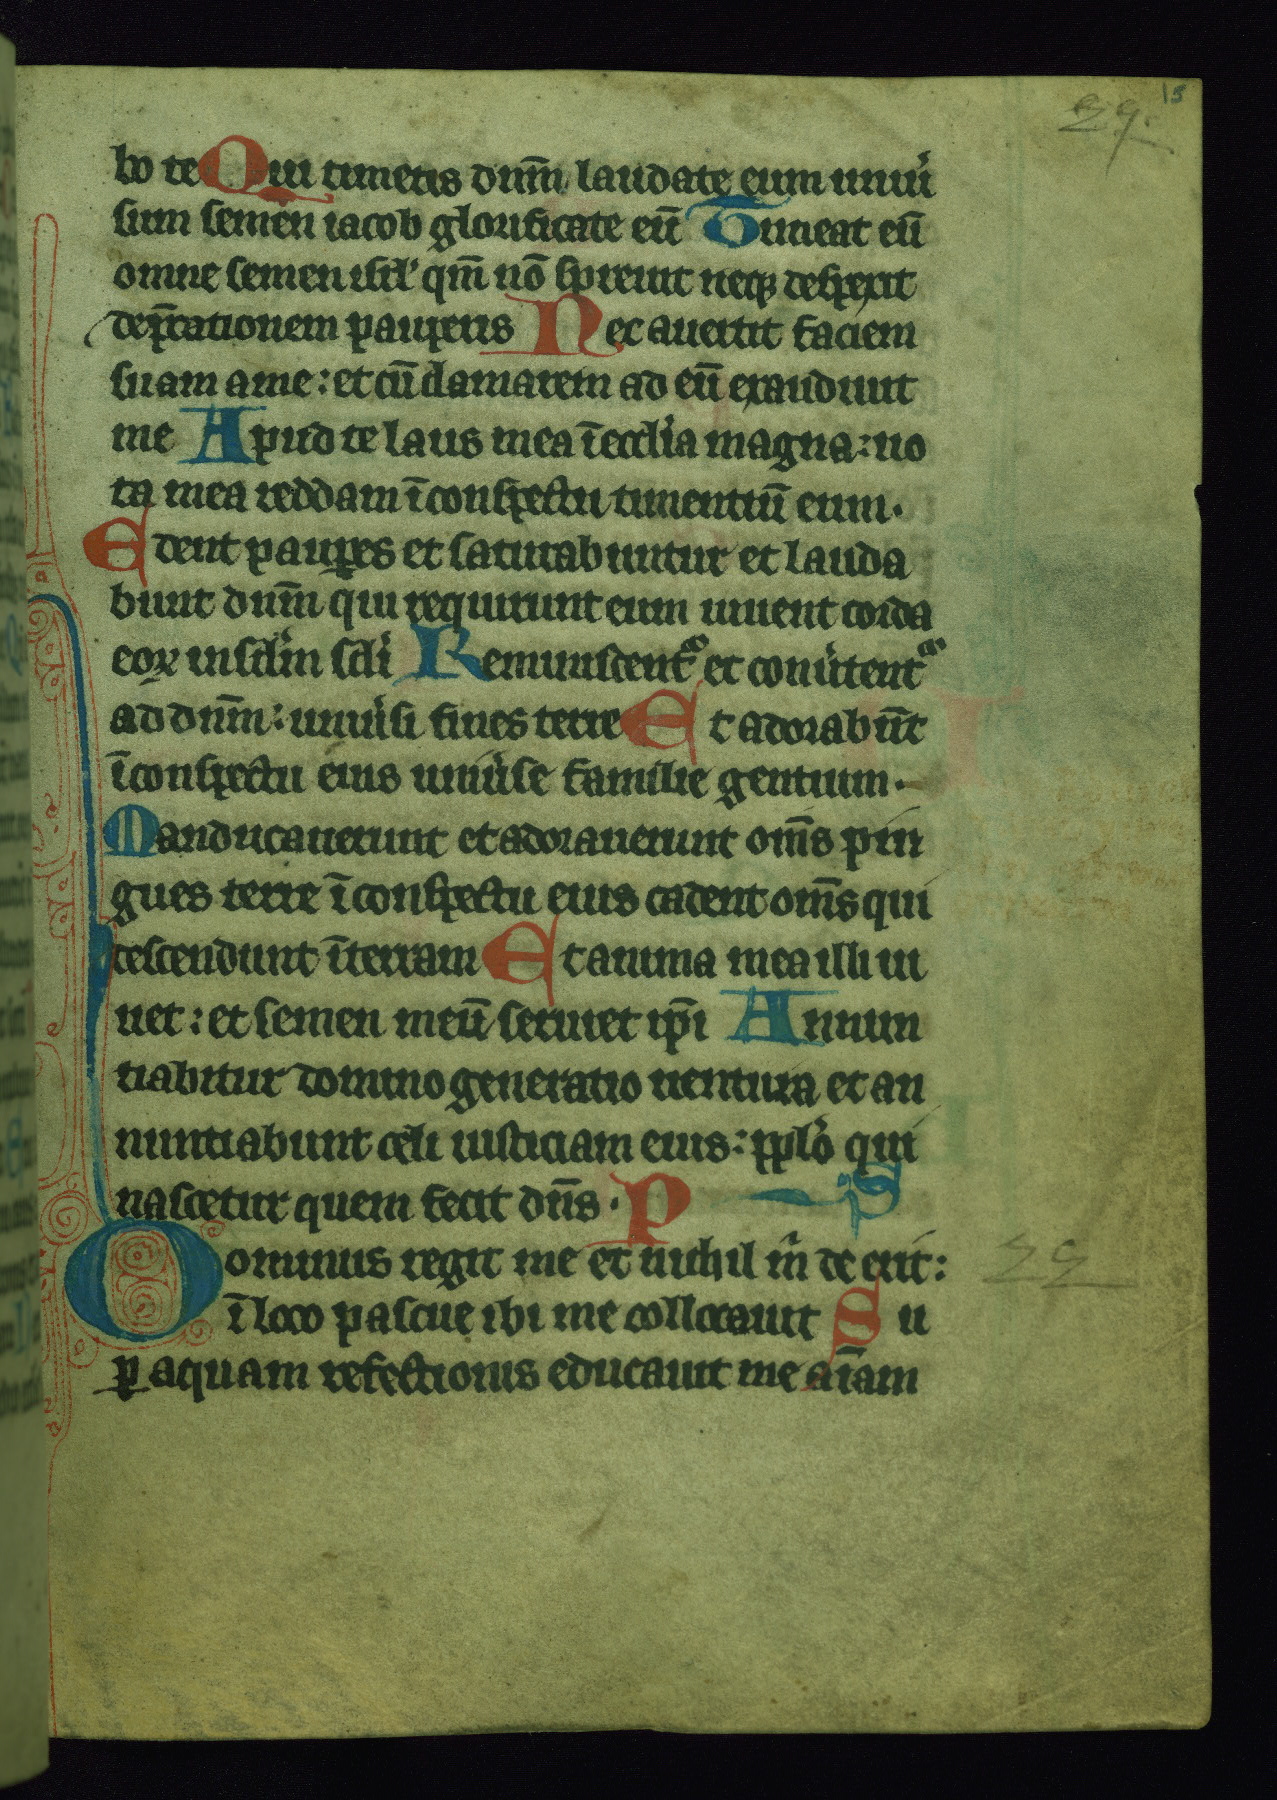 29. 15
bo te Qui timetis dnm̄ laudate eum uniu̓
sum semen iacob glorificate eū Timeat eū
omne semen isrl̓ qm̄ nō spreuit neqꝫ despexit
dep̄cationem pauperis Nec auertit faciem
suam a me: et cū clamarem ad eū exaudiuit
me Apud te laus mea ī eccl̓ia magna: uo
ta mea reddam ī conspectu timentiū eum.
Edent pauꝑes et saturabuntur et lauda
bunt dnm̄ qui requirunt eum uiuent corda
eoꝝ in scl̓m scl̓i Reminiscent᷑ et conu̓tent᷑
ad dnm̄: uniu̓si fines terre Et adorabūt
ī conspectu eius uniu̓se familie gentium.
Manducauerunt et adorauerunt om̄s pin
gues terre ī conspectu eius cadent om̄s qui
descendunt ī terram Et anima mea illi ui
uet: et semen meū seruiet ip̄i Annun
tiabitur domino generatio uentura et an
nuntiabunt celi iusticiam eius: pplo̓ qui
nascetur quem fecit dn̄s. P S
Dominus regit me et nichil m̓ de erit: 29
ī loco pascue ibi me collocauit Su
ꝑ aquam refectionis educauit me aīam